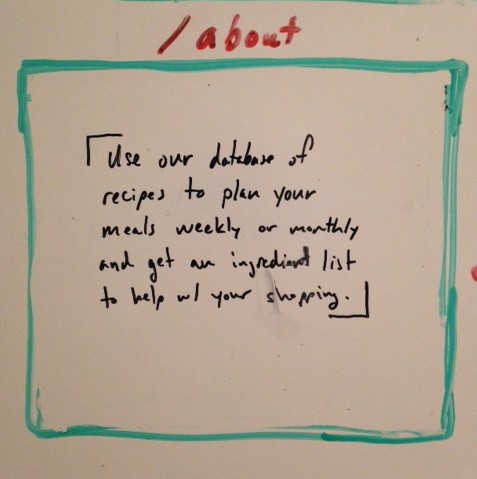 /about
Use our database of
recipes to plan your
meals weekly or monthly
and get an ingredient list
to help w/ your shopping.